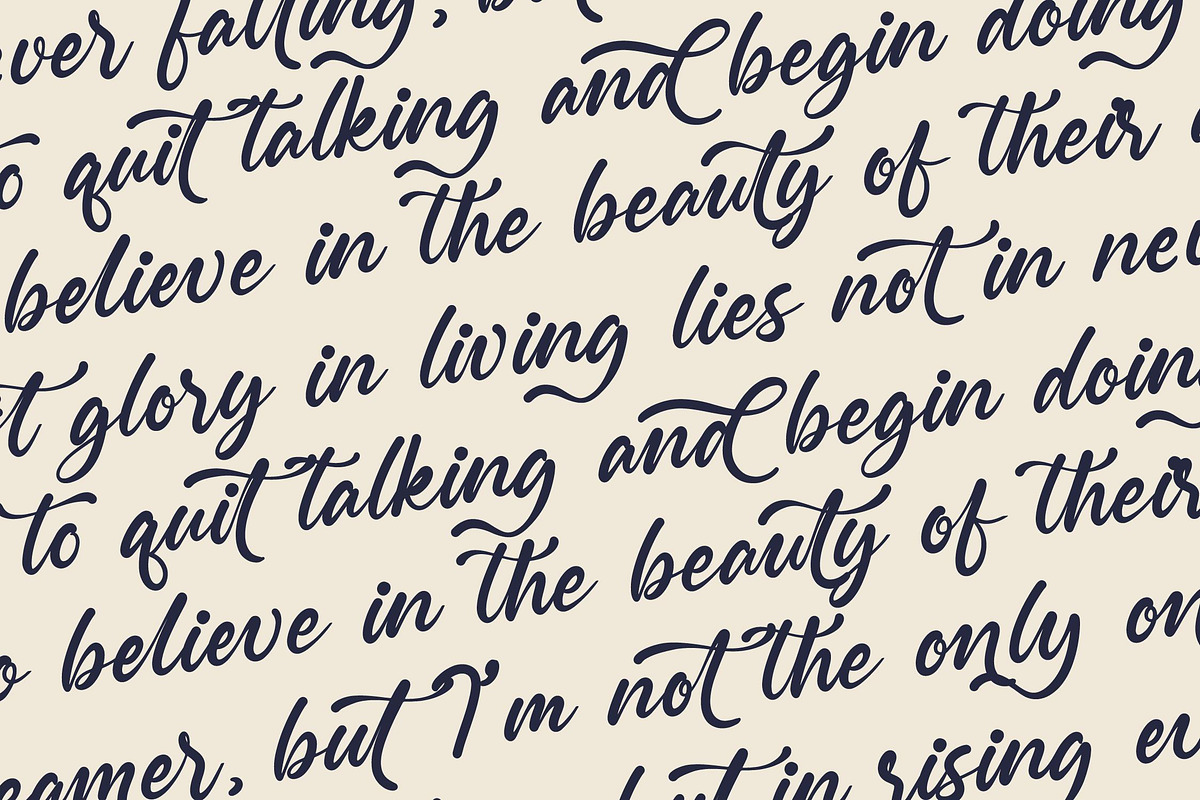 ever falling, bu
o quit talking and begin doing
believe in the beauty of their
t glory in living lies not in nev
to quit talking and begin doin
o believe in the beauty of their
eamer, but I'm not the only on
but in rising ev